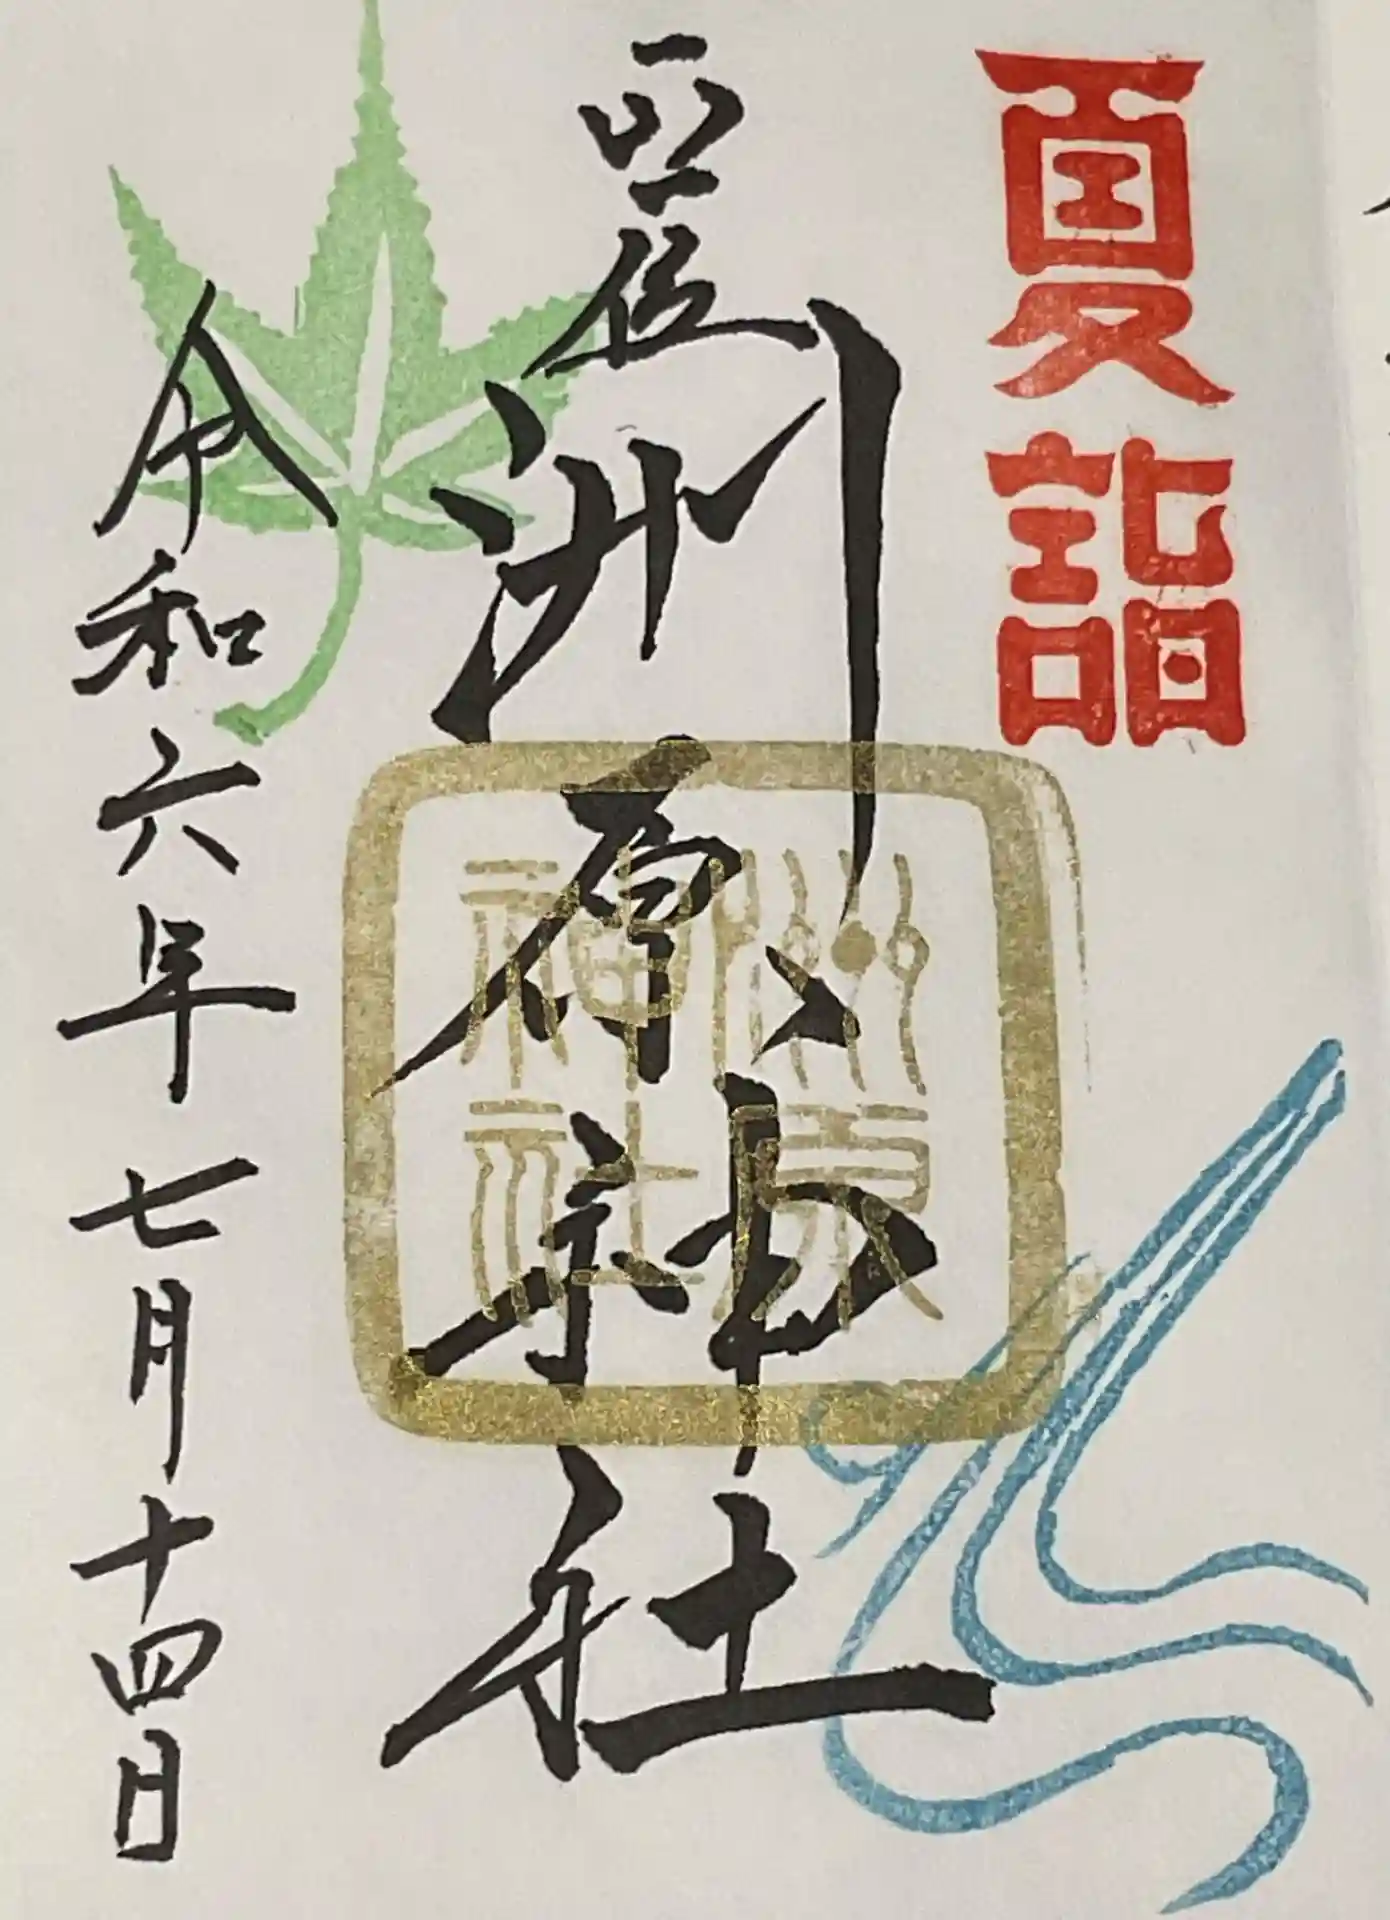 夏詣
正一位
洲原神社
洲原
神社
令和六年七月十四日